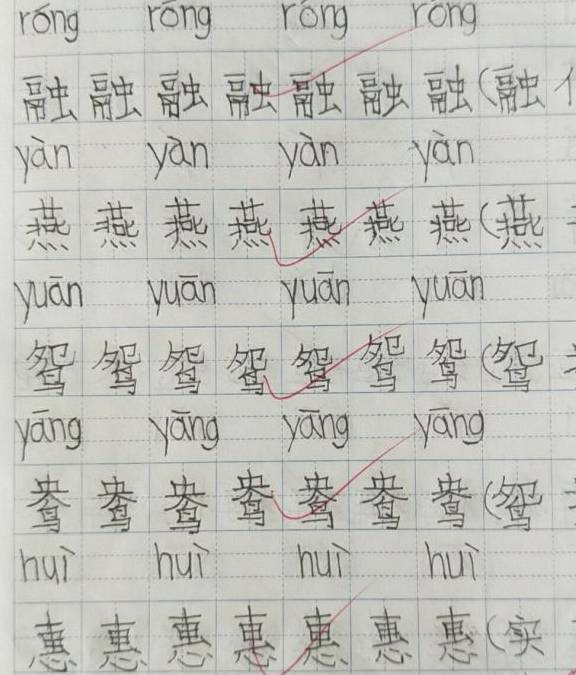 róng róng róng róng
融融融融融融融(融
yàn yàn yàn yàn
燕燕燕燕燕燕燕(燕
yuān yuān yuān yuān
鸳鸳鸳鸳鸳鸳鸳(鸳
yāng yāng yāng yāng
鸯鸯鸯鸯鸯鸯鸯(鸳
huì huì huì huì
惠惠惠惠惠惠惠(实